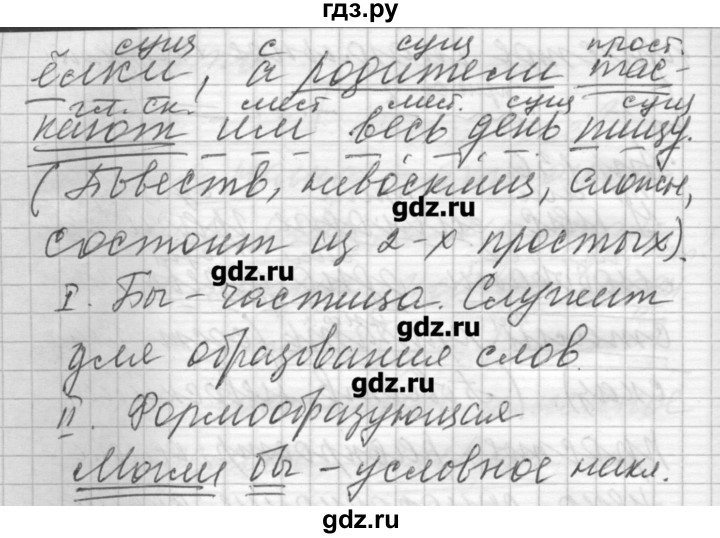 гдз.ру
сущ с сущ прост.
ёлки, а родители тас-
гл. ск. мест мест. сущ сущ
кают им весь день пищу.
(Повеств, невосклиц, сложн,
gdz.ru
состоит из 2-х простых).
gdz.ru
I. Бы - частица. Служит
gdz.ru
для образования слов.
gdz.ru
II. Формообразующая
Могли бы - условное накл.
gdz.ru